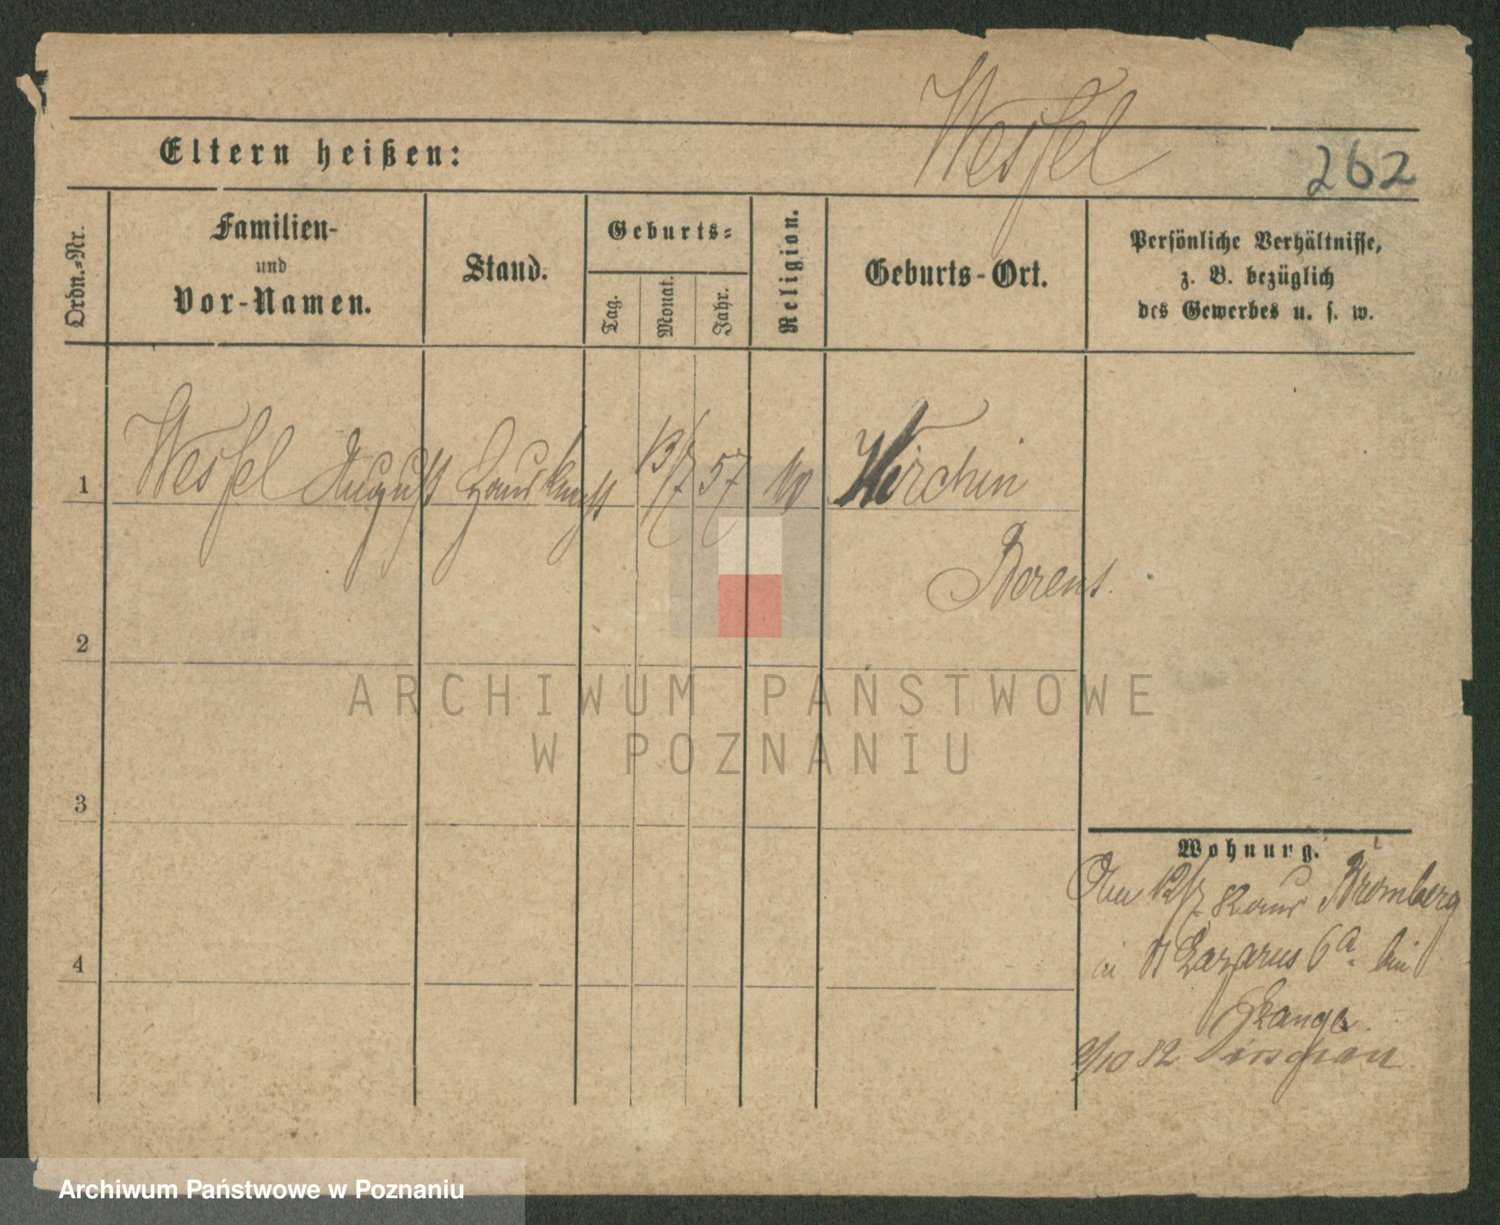 Wessel
Eltern heißen:
262
Ordn.-Nr.
Familien-
und
Vor-Namen.
Stand.
Geburts-
Tag.
Monat.
Jahr.
Religion.
Geburts-Ort.
Persönliche Verhältnisse,
z. B. bezüglich
des Gewerbes u. s. w.
1 Wessel August Hausknecht 13/7 57 Wirchin
Berent.
2
3
4
Wohnung.
12/7 82 aus Bromberg
in St Lazarus 6a bei
Lange
9/10 82 Dirschau
ARCHIWUM PAŃSTWOWE
W POZNANIU
Archiwum Państwowe w Poznaniu